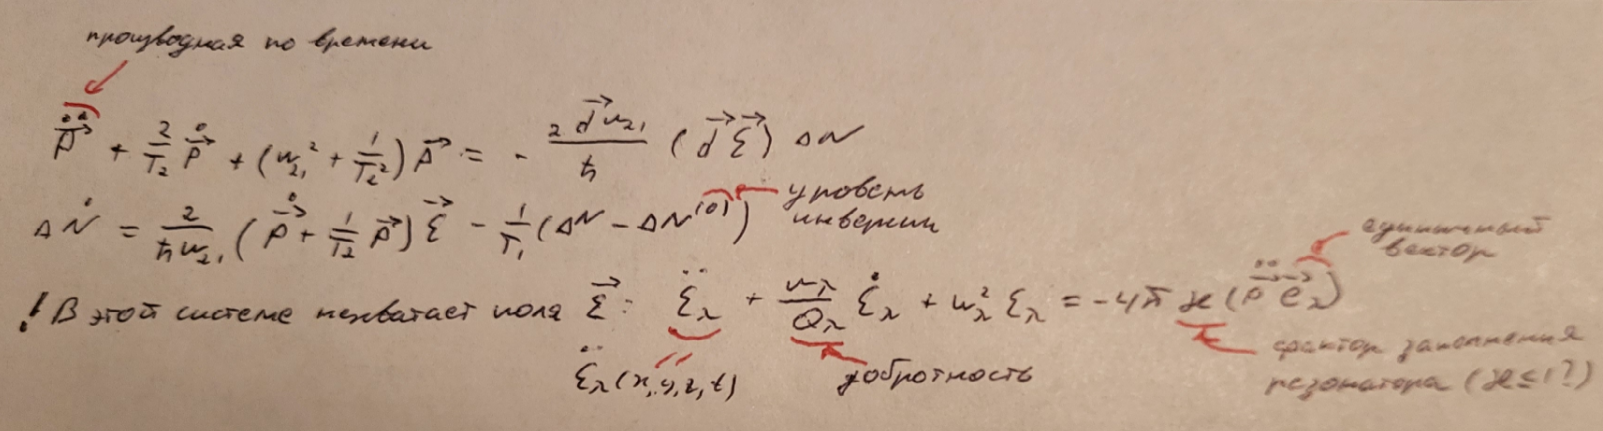 производная по времени
$\ddot{\vec{P}} + \frac{2}{T_2} \dot{\vec{P}} + (\omega_{21}^2 + \frac{1}{T_2^2}) \vec{P} = - \frac{2 \vec{d} \omega_{21}}{\hbar} (\vec{d} \vec{\mathcal{E}}) \Delta N$
$\Delta \dot{N} = \frac{2}{\hbar \omega_{21}} (\dot{\vec{P}} + \frac{1}{T_2} \vec{P}) \vec{\mathcal{E}} - \frac{1}{T_1} (\Delta N - \Delta N^{(0)})$
уровень
инверсии
единичный
вектор
! В этой системе нехватает поля $\vec{\mathcal{E}}$: $\ddot{\mathcal{E}}_\lambda + \frac{\omega_\lambda}{Q_\lambda} \dot{\mathcal{E}}_\lambda + \omega_\lambda^2 \mathcal{E}_\lambda = -4\pi \varkappa (\ddot{\vec{P}} \vec{e}_\lambda)$
$\ddot{\mathcal{E}}_\lambda (x, y, z, t)$
добротность
фактор заполнения
резонатора ($\varkappa \leq 1$?)